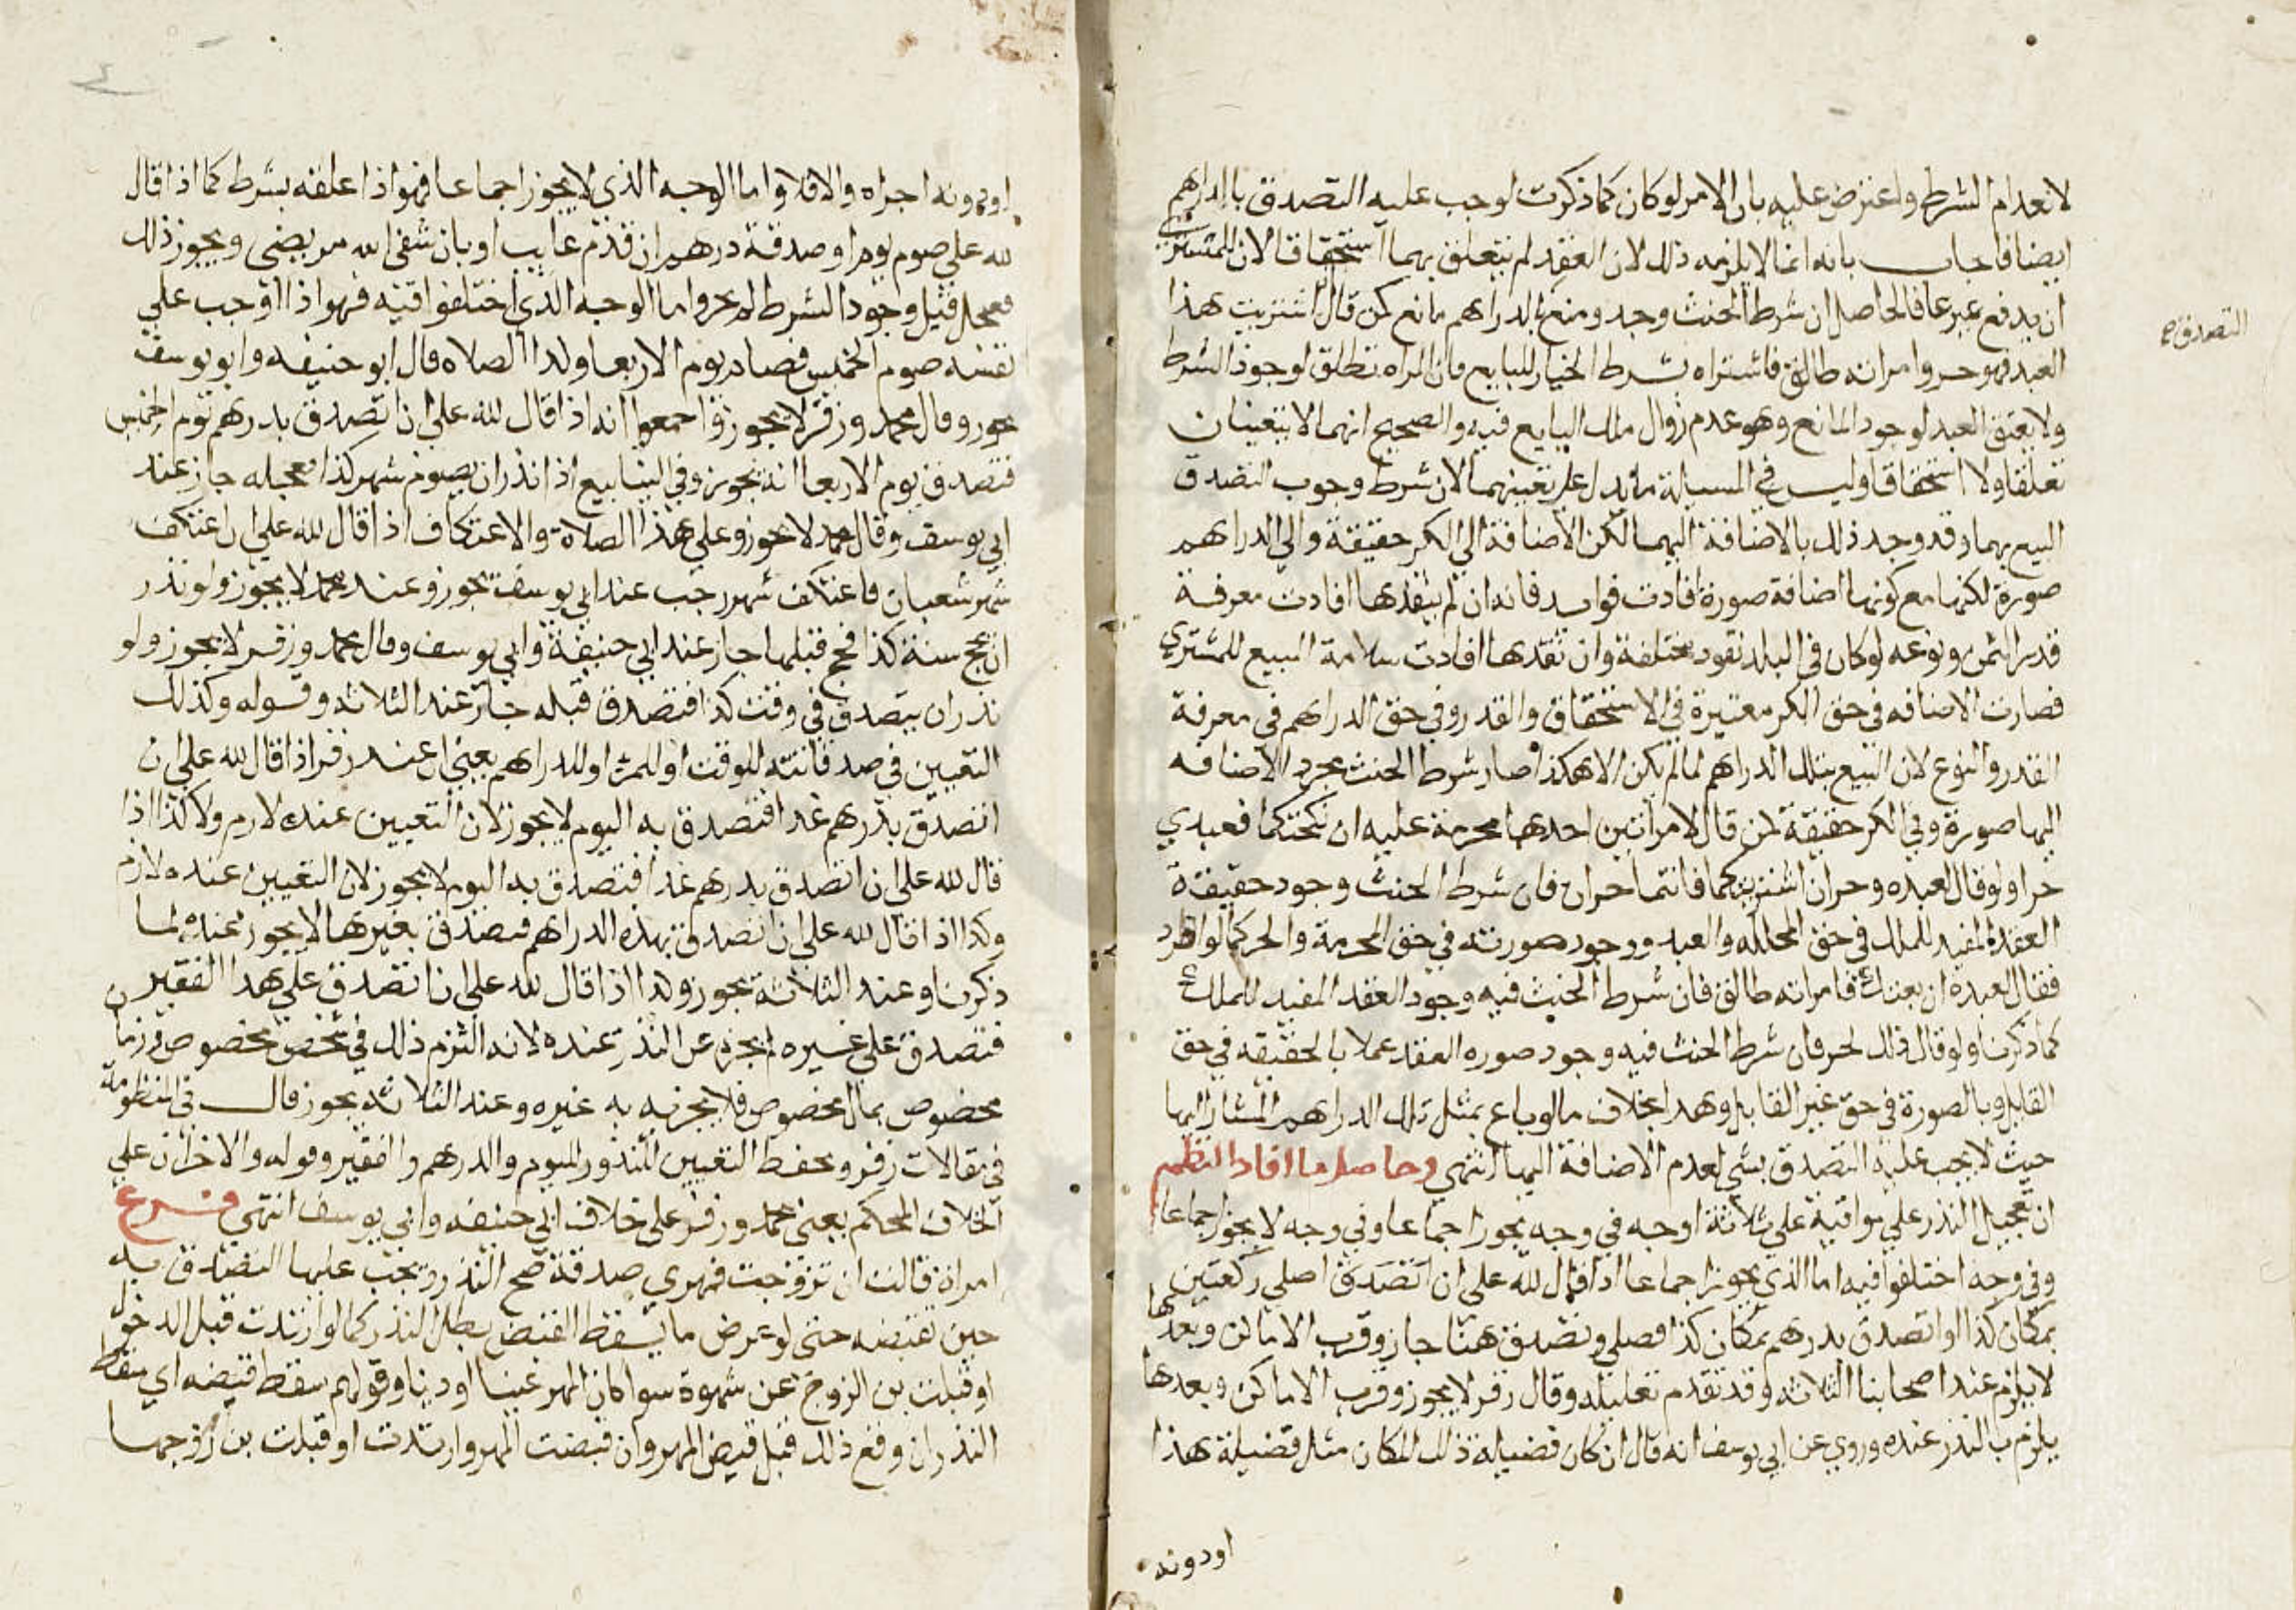 لانعدام الشرط واعترض عليه بان الامر لو كان كما ذكرت لوجب عليه التصدق بالدراهم
ايضا فاجاب بانه انما لا يلزمه ذلك لان العقد لم يتعلق بهما استحقاقا لان للمشتري
ان يدفع غيرها فالحاصل ان شرط الحنث وجد ومنع بالدراهم مانع كمن قال ان اشتريت هذا
العبد فهو حر وامراته طالق فاشتراه بشرط الخيار للبايع فان المراه تطلق لوجود الشرط
ولا يعتق العبد لوجود المانع وهو عدم زوال ملك البايع فيه والصحيح انهما لا يتعينان
تعلقا ولا استحقاقا وليس في المسيالة ما يدل على تعينهما لان شرط وجوب التصدق
التصدق صح
البيع بهما وقد وجد ذلك بالاضافة اليهما لكن الاضافة الي الكر حقيقة والي الدراهم
صورة لكنها مع كونها اضافة صورة افادت فوايد فانه ان لم ينقدها افادت معرفة
قدر الثمن ونوعه لو كان في البلد نقود مختلفة وان نقدها افادت سلامة المبيع للمشتري
فصارت الاضافه في حق الكر معتبرة في الاستحقاق والقدر وفي حق الدراهم في معرفة
القدر والنوع لان البيع بتلك الدراهم لما لم يكن الا هكذا صار شرط الحنث مجرد الاضافه
اليها صورة وفي الكر حقيقة كمن قال لامراتين احدهما محرمة عليه ان نكحتكما فعبدي
حر او لو قال لعبده وحر ان اشتريتكما فانتما حران فان شرط الحنث وجود حقيقة
العقد المفيد للملك في حق المحللة والعبد ووجود صورته في حق المحرمة والحر كما لو افرد
فقال لعبده ان بعتك فامراته طالق فان شرط الحنث فيه وجود العقد المفيد للملك
كما ذكرنا ولو قال ذلك لحر فان شرط الحنث فيه وجود صوره العقد عملا بالحقيقه في حق
القابل وبالصورة في حق غير القابل وهذا بخلاف ما لو باع بمثل تلك الدراهم المشار اليها
حيث لا يجب عليه التصدق بشي لعدم الاضافة اليها انتهي وحاصل ما افاد النظم
ان تعجيل النذر علي مواقيته علي ثلاثة اوجه في وجه يجوز اجماعا وفي وجه لا يجوز اجماعا
وفي وجه اختلفوا فيه اما الذي يجوز اجماعا اذا قال لله على ان اتصدق اصلي ركعتين
بمكان كذا او اتصدق بدرهم بمكان كذا فصلي وتصدق هنا جاز وقرب الاماكن وبعدها
لا يلزم عند اصحابنا الثلاثه وقد تقدم تعليله وقال زفر لا يجوز وقرب الاماكن وبعدها
يلزم بالنذر عنده وروي عن ابي يوسف انه قال ان كان فضيلة ذلك المكان مثل فضيلة هذا
او دونه
او دونه اجزاه والا فلا واما الوجه الذي لا يجوز اجماعا فهو اذا علقه بشرط كما اذا قال
لله علي صوم يوم او صدقة درهم ان قدم غايب او بان شفي الله مريضي ويجوز ذلك
فعجل قبل وجود الشرط لم يجز واما الوجه الذي اختلفوا فيه فهو اذا اوجب علي
نفسه صوم الخميس فصام يوم الاربعا وكذا الصلاه قال ابو حنيفه وابو يوسف
يجوز وقال محمد وزفر لا يجوز واجمعوا انه اذا قال لله علي ان اتصدق بدرهم يوم الخميس
فتصدق يوم الاربعا انه يجوز وفي الينابيع اذا نذر ان يصوم شهر كذا فعجله جاز عند
ابي يوسف وقال محمد لا يجوز وعلي هذا الصلاة والاعتكاف اذا قال لله علي ان اعتكف
شهر شعبان فاعتكف شهر رجب عند ابي يوسف يجوز وعند محمد لا يجوز ولو نذر
ان يحج سنة كذا فحج قبلها جاز عند ابي حنيفة وابي يوسف وقال محمد وزفر لا يجوز ولو
نذر ان يتصدق في وقت كذا فتصدق قبله جاز عند الثلاثه وقوله وكذلك
التعيين في صدقاته للوقت او للمرء او للدراهم يعني ان عند زفر اذا قال لله علي ان
اتصدق بدرهم غدا فتصدق به اليوم لا يجوز لان التعيين عنده لازم وكذا اذا
قال لله على ان اتصدق بدرهم غدا فتصدق به اليوم لا يجوز لان التعيين عنده لازم
وكذا اذا قال لله علي ان اتصدق بهذه الدراهم فتصدق بغيرها لا يجوز عنده لما
ذكرنا وعند الثلاثة يجوز وكذا اذا قال لله على ان اتصدق علي هذا الفقير
فتصدق علي غيره لم يجزه عن النذر عنده لانه التزم ذلك في شخص مخصوص وزمان
مخصوص بمال مخصوص فلا يجزيه به غيره وعند الثلاثه يجوز قال في المنظومة
في مقالات زفر ويحفظ التعيين للنذور لليوم والدرهم والفقير وقوله والاخران علي
الخلاف المحكم يعني محمد وزفر علي خلاف ابي حنيفه وابي يوسف انتهي فرع
امراة قالت ان تزوجت فمهري صدقة صح النذر ويجب عليها التصدق به
حين تقبضه حتى لو عرض ما يسقط القبض بطل النذر كما لو ارتدت قبل الدخول
او قبلت بن الزوج عن شهوة سوا كان المهر عينا او دينا وقولهم سقط قبضه اي سقط
النذر ان وقع ذلك قبل قبض المهر وان قبضت المهر وارتدت او قبلت بن زوجها